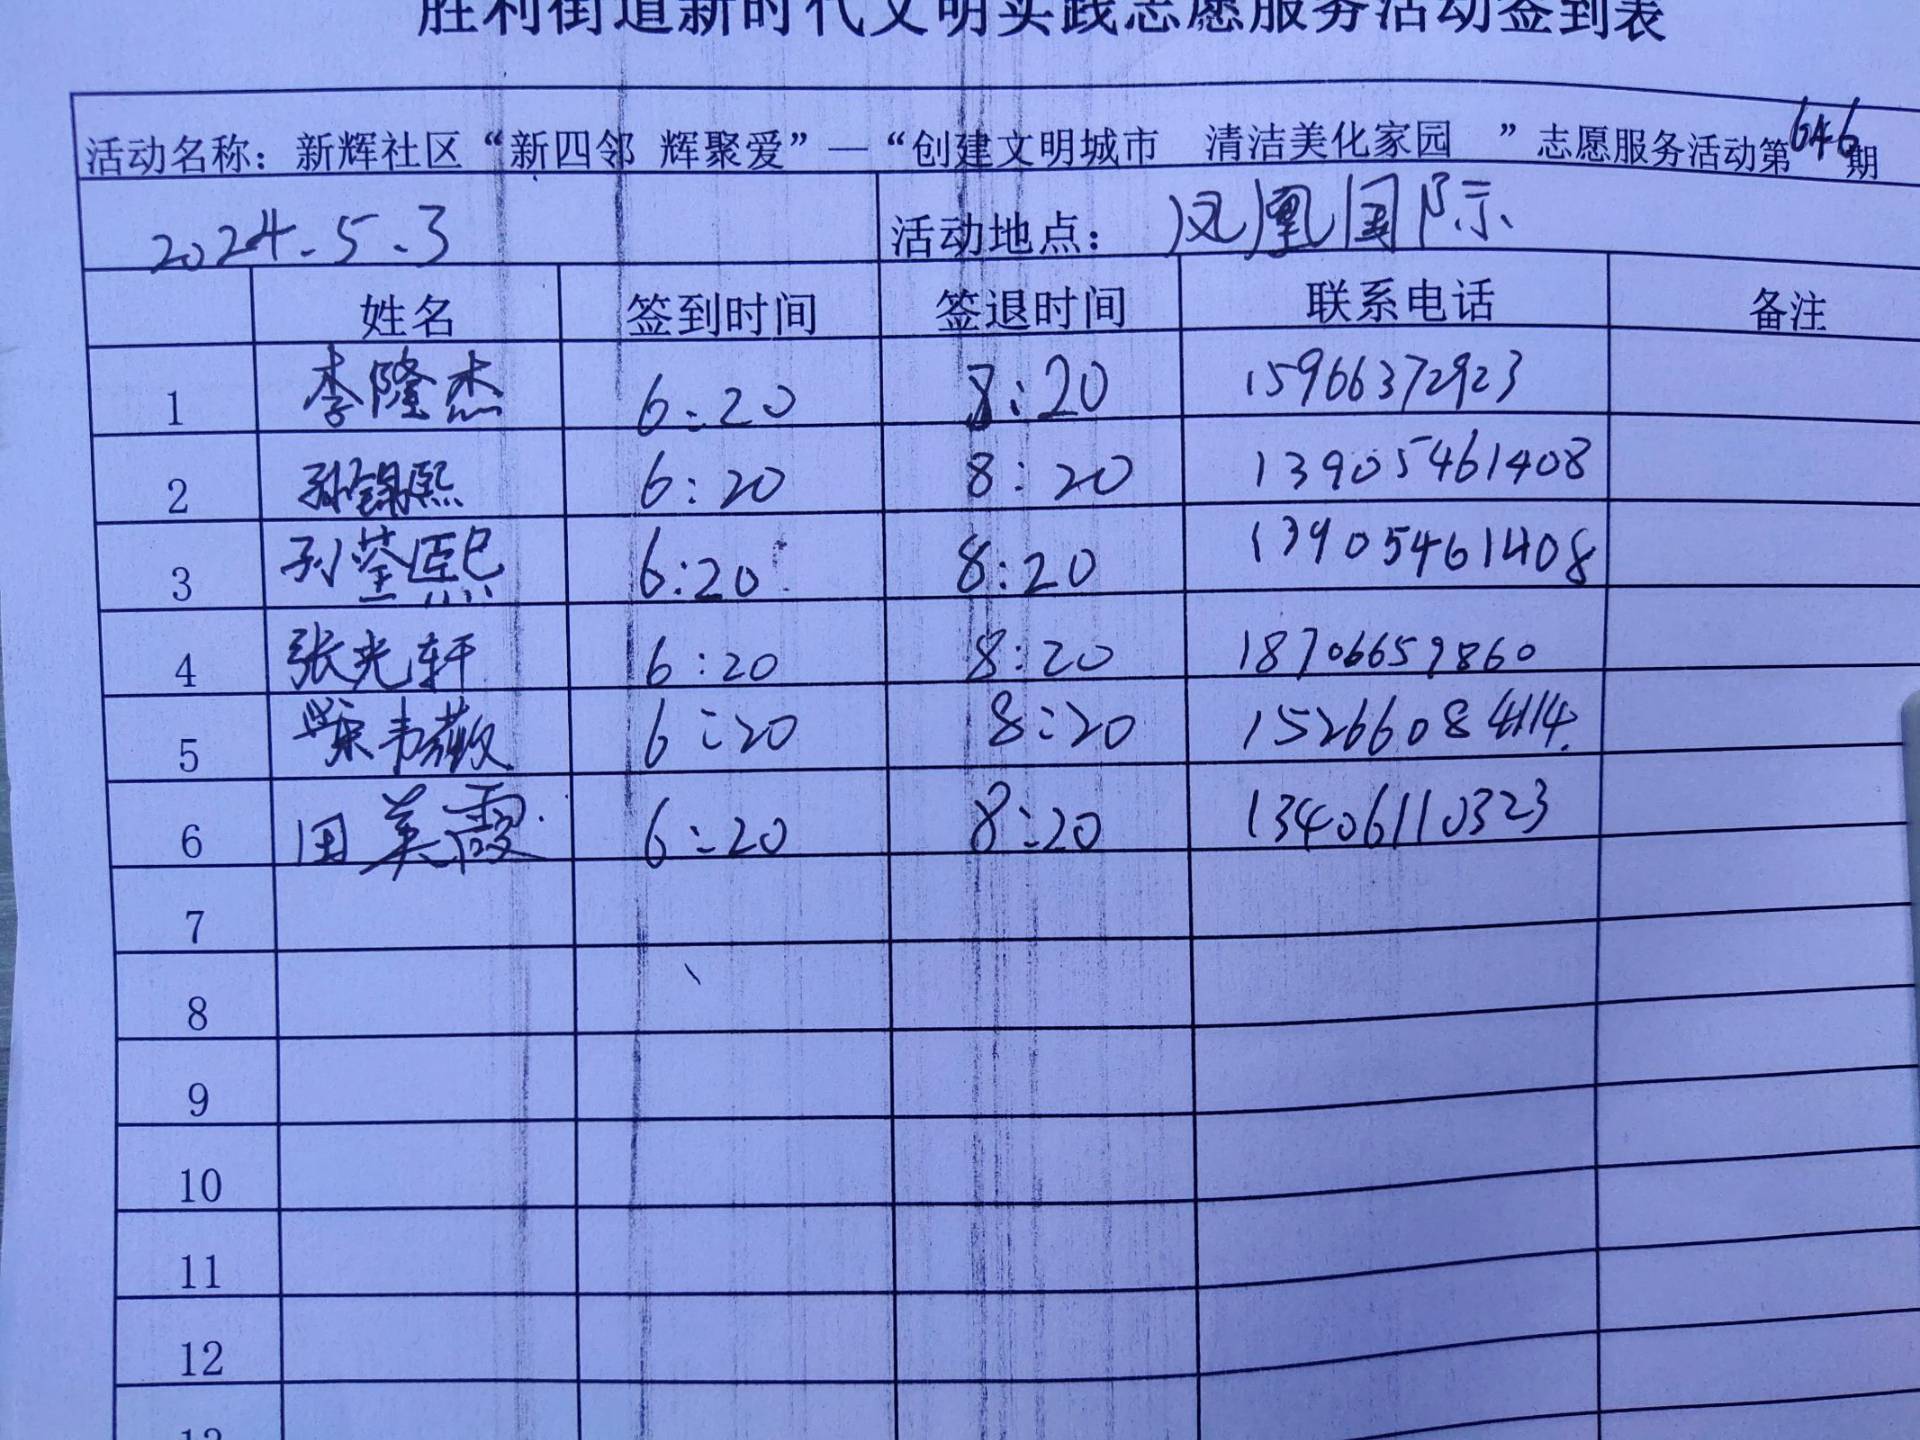 胜利街道新时代文明实践志愿服务活动签到表
活动名称：新辉社区“新四邻 辉聚爱”—“创建文明城市 清洁美化家园 ”志愿服务活动第646期
2024.5.3 活动地点：凤凰国际
姓名 签到时间 签退时间 联系电话 备注
1 李隆杰 6:20 8:20 15966372923
2 孙锦熙 6:20 8:20 13905461408
3 孙荃熙 6:20 8:20 13905461408
4 张光轩 6:20 8:20 18706659860
5 6:20 8:20 15266084114
6 田美霞 6:20 8:20 13406110323
7
8
9
10
11
12
13